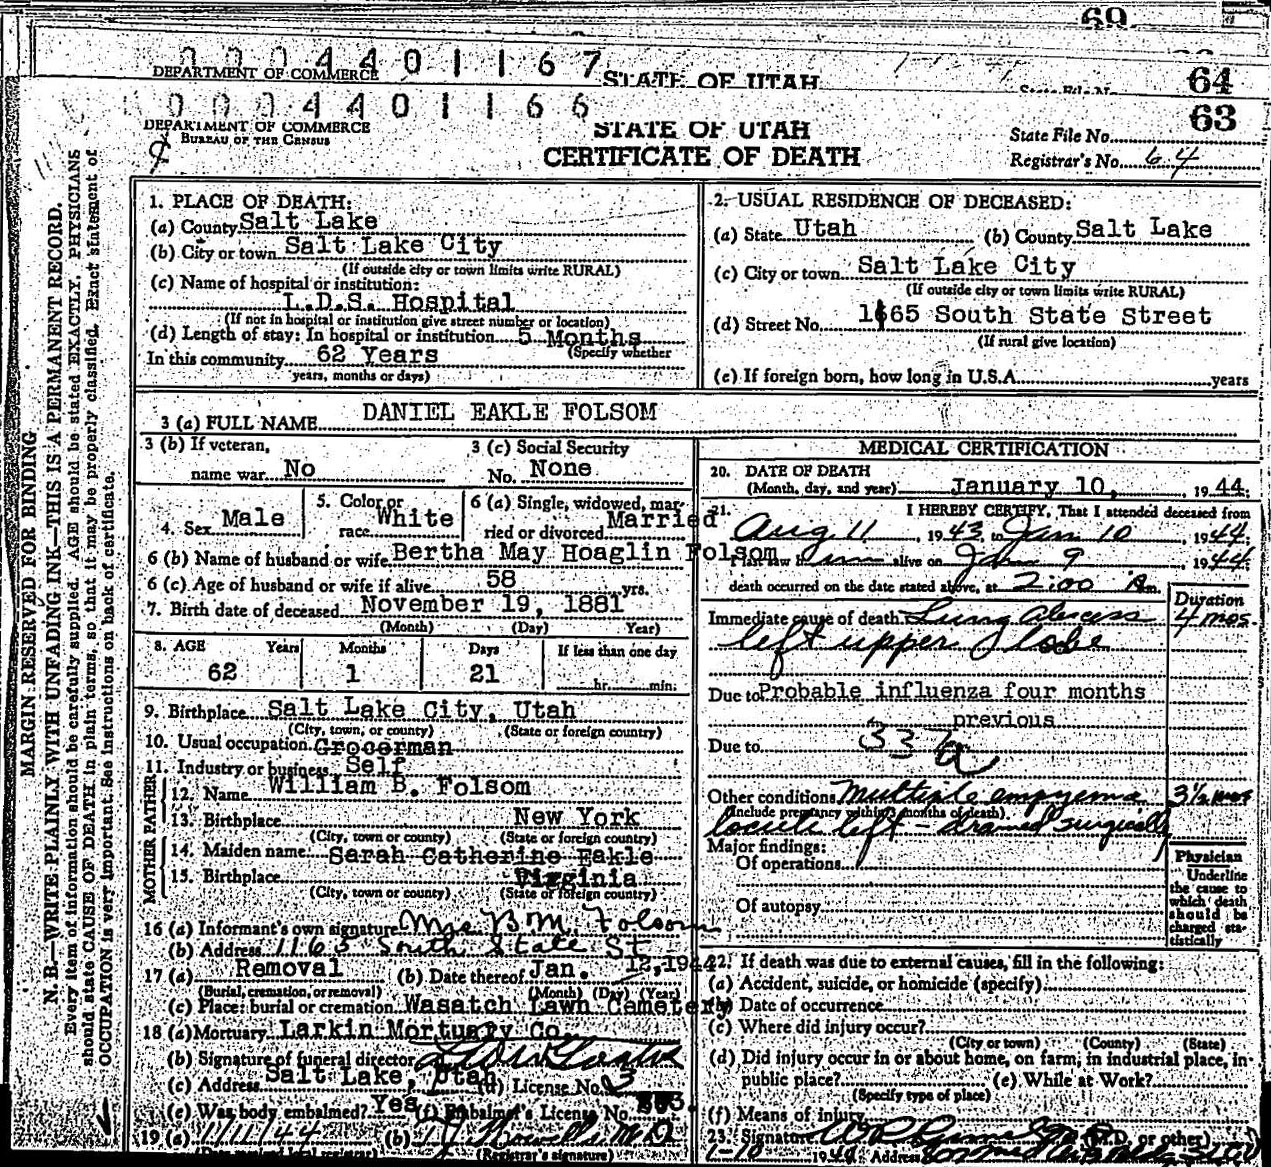 69
0004401167
DEPARTMENT OF COMMERCE
STATE OF UTAH
64
0004401166
DEPARTMENT OF COMMERCE
BUREAU OF THE CENSUS
STATE OF UTAH
CERTIFICATE OF DEATH
State File No. 63
Registrar's No. 64
MARGIN RESERVED FOR BINDING
N. B.—WRITE PLAINLY WITH UNFADING INK—THIS IS A PERMANENT RECORD.
Every item of information should be carefully supplied. AGE should be stated EXACTLY. PHYSICIANS
should state CAUSE OF DEATH in plain terms, so that it may be properly classified. Exact statement of
OCCUPATION is very important. See instructions on back of certificate.
1. PLACE OF DEATH:
(a) County Salt Lake
(b) City or town Salt Lake City
(If outside city or town limits write RURAL)
(c) Name of hospital or institution:
L.D.S. Hospital
(If not in hospital or institution give street number or location)
(d) Length of stay: In hospital or institution 5 Months
(Specify whether
In this community 62 Years
years, months or days)
2. USUAL RESIDENCE OF DECEASED:
(a) State Utah (b) County Salt Lake
(c) City or town Salt Lake City
(If outside city or town limits write RURAL)
(d) Street No. 1165 South State Street
(If rural give location)
(e) If foreign born, how long in U.S.A. years
3 (a) FULL NAME DANIEL EAKLE FOLSOM
3 (b) If veteran,
name war No
3 (c) Social Security
No. None
4. Sex Male
5. Color or
race White
6 (a) Single, widowed, mar-
ried or divorced Married
6 (b) Name of husband or wife Bertha May Hoaglin Folsom
6 (c) Age of husband or wife if alive 58 yrs.
7. Birth date of deceased November 19, 1881
(Month) (Day) Year)
8. AGE Years Months Days If less than one day
62 1 21 hr. min.
9. Birthplace Salt Lake City, Utah
(City, town, or county) (State or foreign country)
10. Usual occupation Grocerman
11. Industry or business Self
FATHER
12. Name William B. Folsom
13. Birthplace New York
(City, town or county) (State or foreign country)
MOTHER
14. Maiden name Sarah Catherine Eakle
15. Birthplace Virginia
(City, town or county) (State or foreign country)
16 (a) Informant's own signature Mrs B M Folsom
(b) Address 1165 South State St
17 (a) Removal (b) Date thereof Jan. 12, 1944
(Burial, cremation, or removal) (Month) (Day) (Year)
(c) Place: burial or cremation Wasatch Lawn Cemetery
18 (a) Mortuary Larkin Mortuary Co.
(b) Signature of funeral director
(c) Address Salt Lake, Utah (d) License No. 3
(e) Was body embalmed? Yes (f) Embalmer's License No.
19 (a) 1/11/44 (b) M D
(Registrar's signature)
MEDICAL CERTIFICATION
20. DATE OF DEATH
(Month, day, and year) January 10, 1944
21. I HEREBY CERTIFY, That I attended deceased from
Aug 11, 1943, to Jan 10, 1944
I last saw him alive on Jan 9, 1944
death occurred on the date stated above, at 2:00 A m.
Duration
Immediate cause of death Lung abscess 4 mos.
left upper lobe
Due to Probable influenza four months
previous
Due to 33
Other conditions Multiple empyema 3½ mos
(Include pregnancy within 3 months of death)
loculi left - drained surgically
Major findings:
Of operations
Of autopsy
Physician
Underline
the cause to
which death
should be
charged sta-
tistically
22. If death was due to external causes, fill in the following:
(a) Accident, suicide, or homicide (specify)
(b) Date of occurrence
(c) Where did injury occur?
(City or town) (County) (State)
(d) Did injury occur in or about home, on farm, in industrial place, in
public place? (e) While at Work?
(Specify type of place)
(f) Means of injury
23. Signature (M.D. or other)
1-10 1944 Address